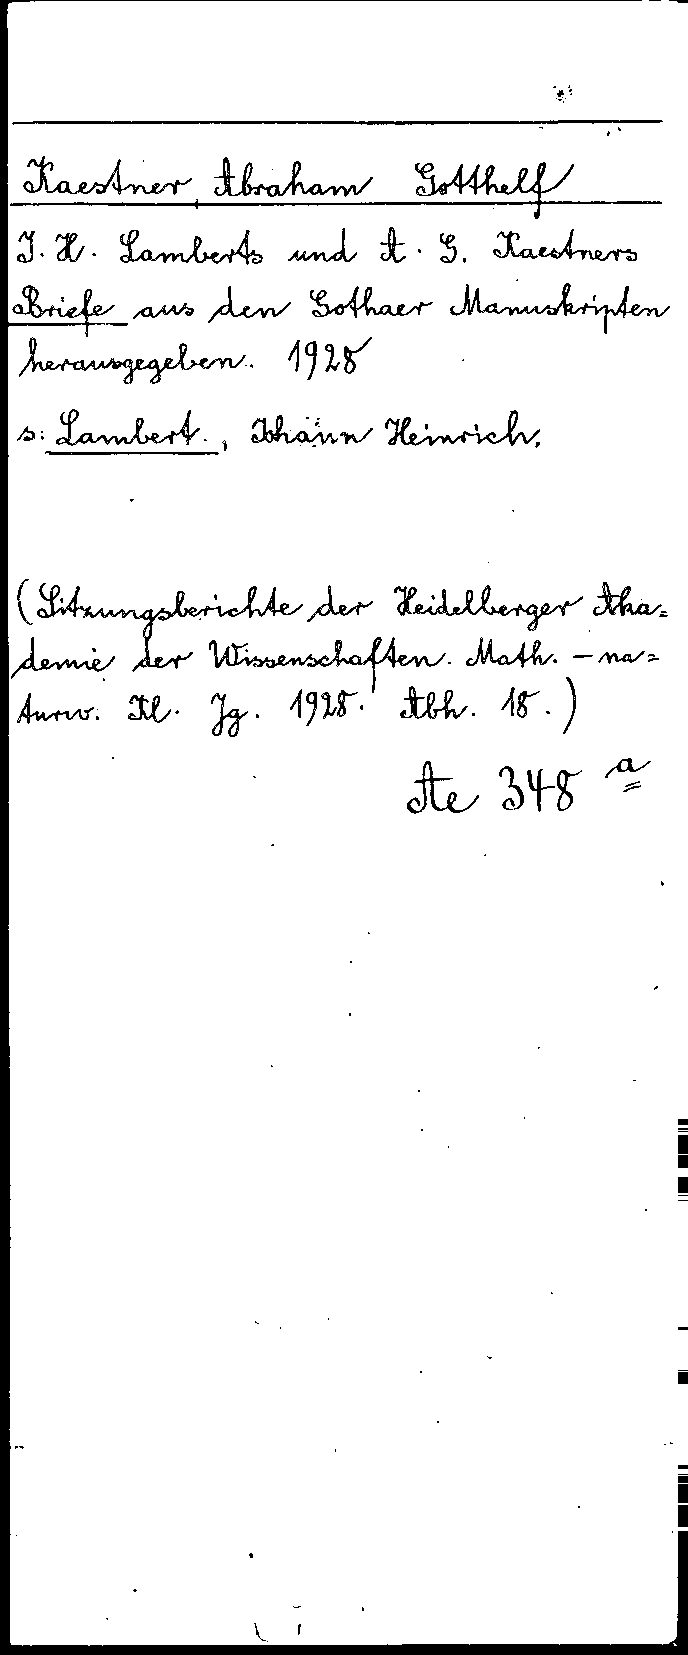 Kaestner, Abraham Gotthelf
J. H. Lamberts und A. G. Kaestners
Briefe aus den Gothaer Manuskripten
herausgegeben. 1928
s: Lambert., Johann Heinrich.
(Sitzungsberichte der Heidelberger Aka=
demie der Wissenschaften. Math. - na=
turw. Kl. Jg. 1928. Abh. 18.)
Ae 348 a